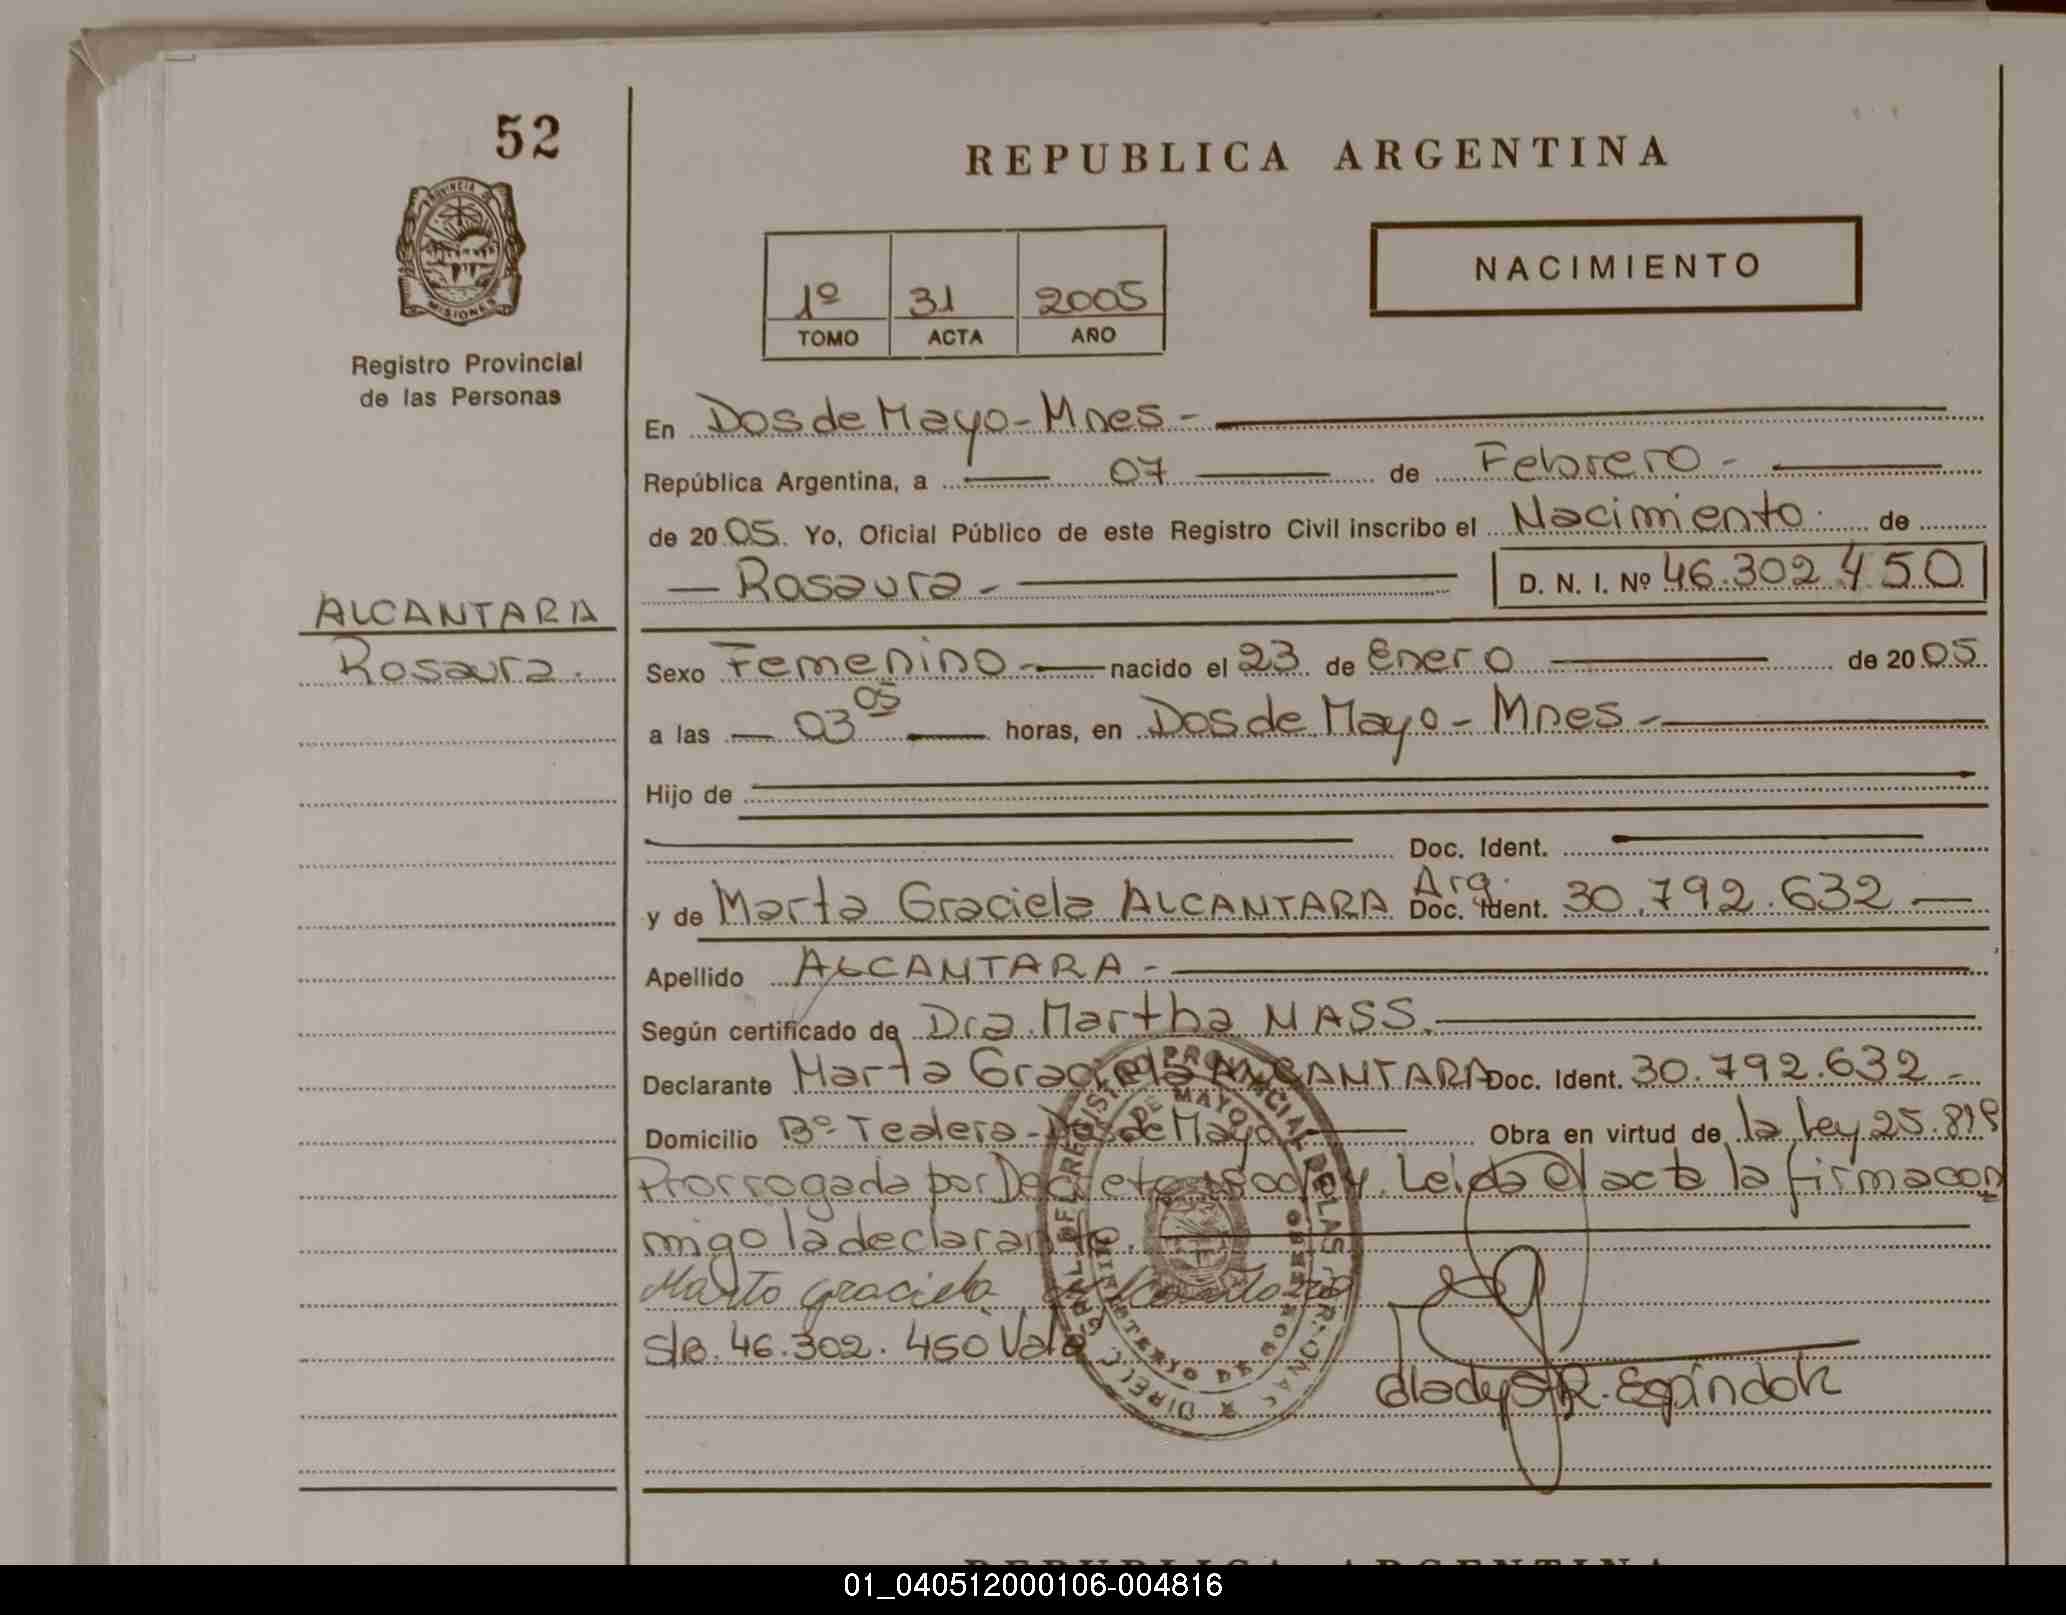 52
REPUBLICA ARGENTINA
PROVINCIA DE
MISIONES
Registro Provincial
de las Personas
1º 31 2005
TOMO ACTA AÑO
NACIMIENTO
En Dos de Mayo - Mnes -
República Argentina, a 07 de Febrero -
de 2005. Yo, Oficial Público de este Registro Civil inscribo el Nacimiento de
— Rosaura - D. N. I. Nº 46.302.450
ALCANTARA
Rosaura.
Sexo Femenino - nacido el 23 de Enero de 2005
a las — 03 05 — horas, en Dos de Mayo - Mnes -
Hijo de
Doc. Ident.
y de Marta Graciela ALCANTARA Arg. Doc. Ident. 30.792.632 —
Apellido ALCANTARA -
Según certificado de Dra. Martha MASS.
Declarante Marta Graciela ALCANTARA Doc. Ident. 30.792.632 -
Domicilio Bº Tealera - Dos de Mayo Obra en virtud de la Ley 25.819
Prorrogada por Decreto Leida el acta la firma con
migo la declarante.
Marta Graciela Alcantara
s/b. 46.302.450 Vale
Gladys R. Espíndola
REPUBLICA ARGENTINA
01_040512000106-004816